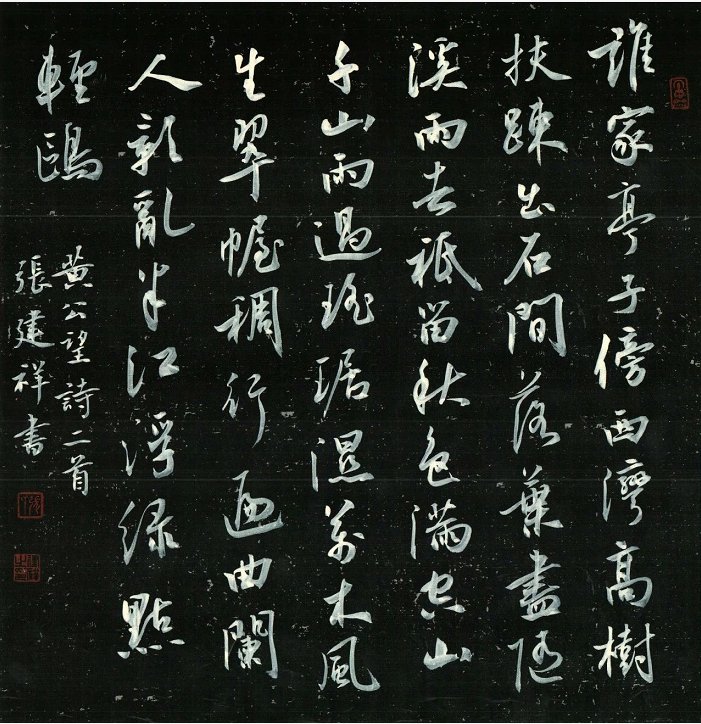 誰家亭子傍西灣高樹
扶踈出石間落葉盡隨
溪雨去祇留秋色滿空山
千山雨過琚濕萬木風
生翠幄稠行遍曲闌
人影亂半江浮緑點
輕鷗
黄公望詩二首
張建祥書